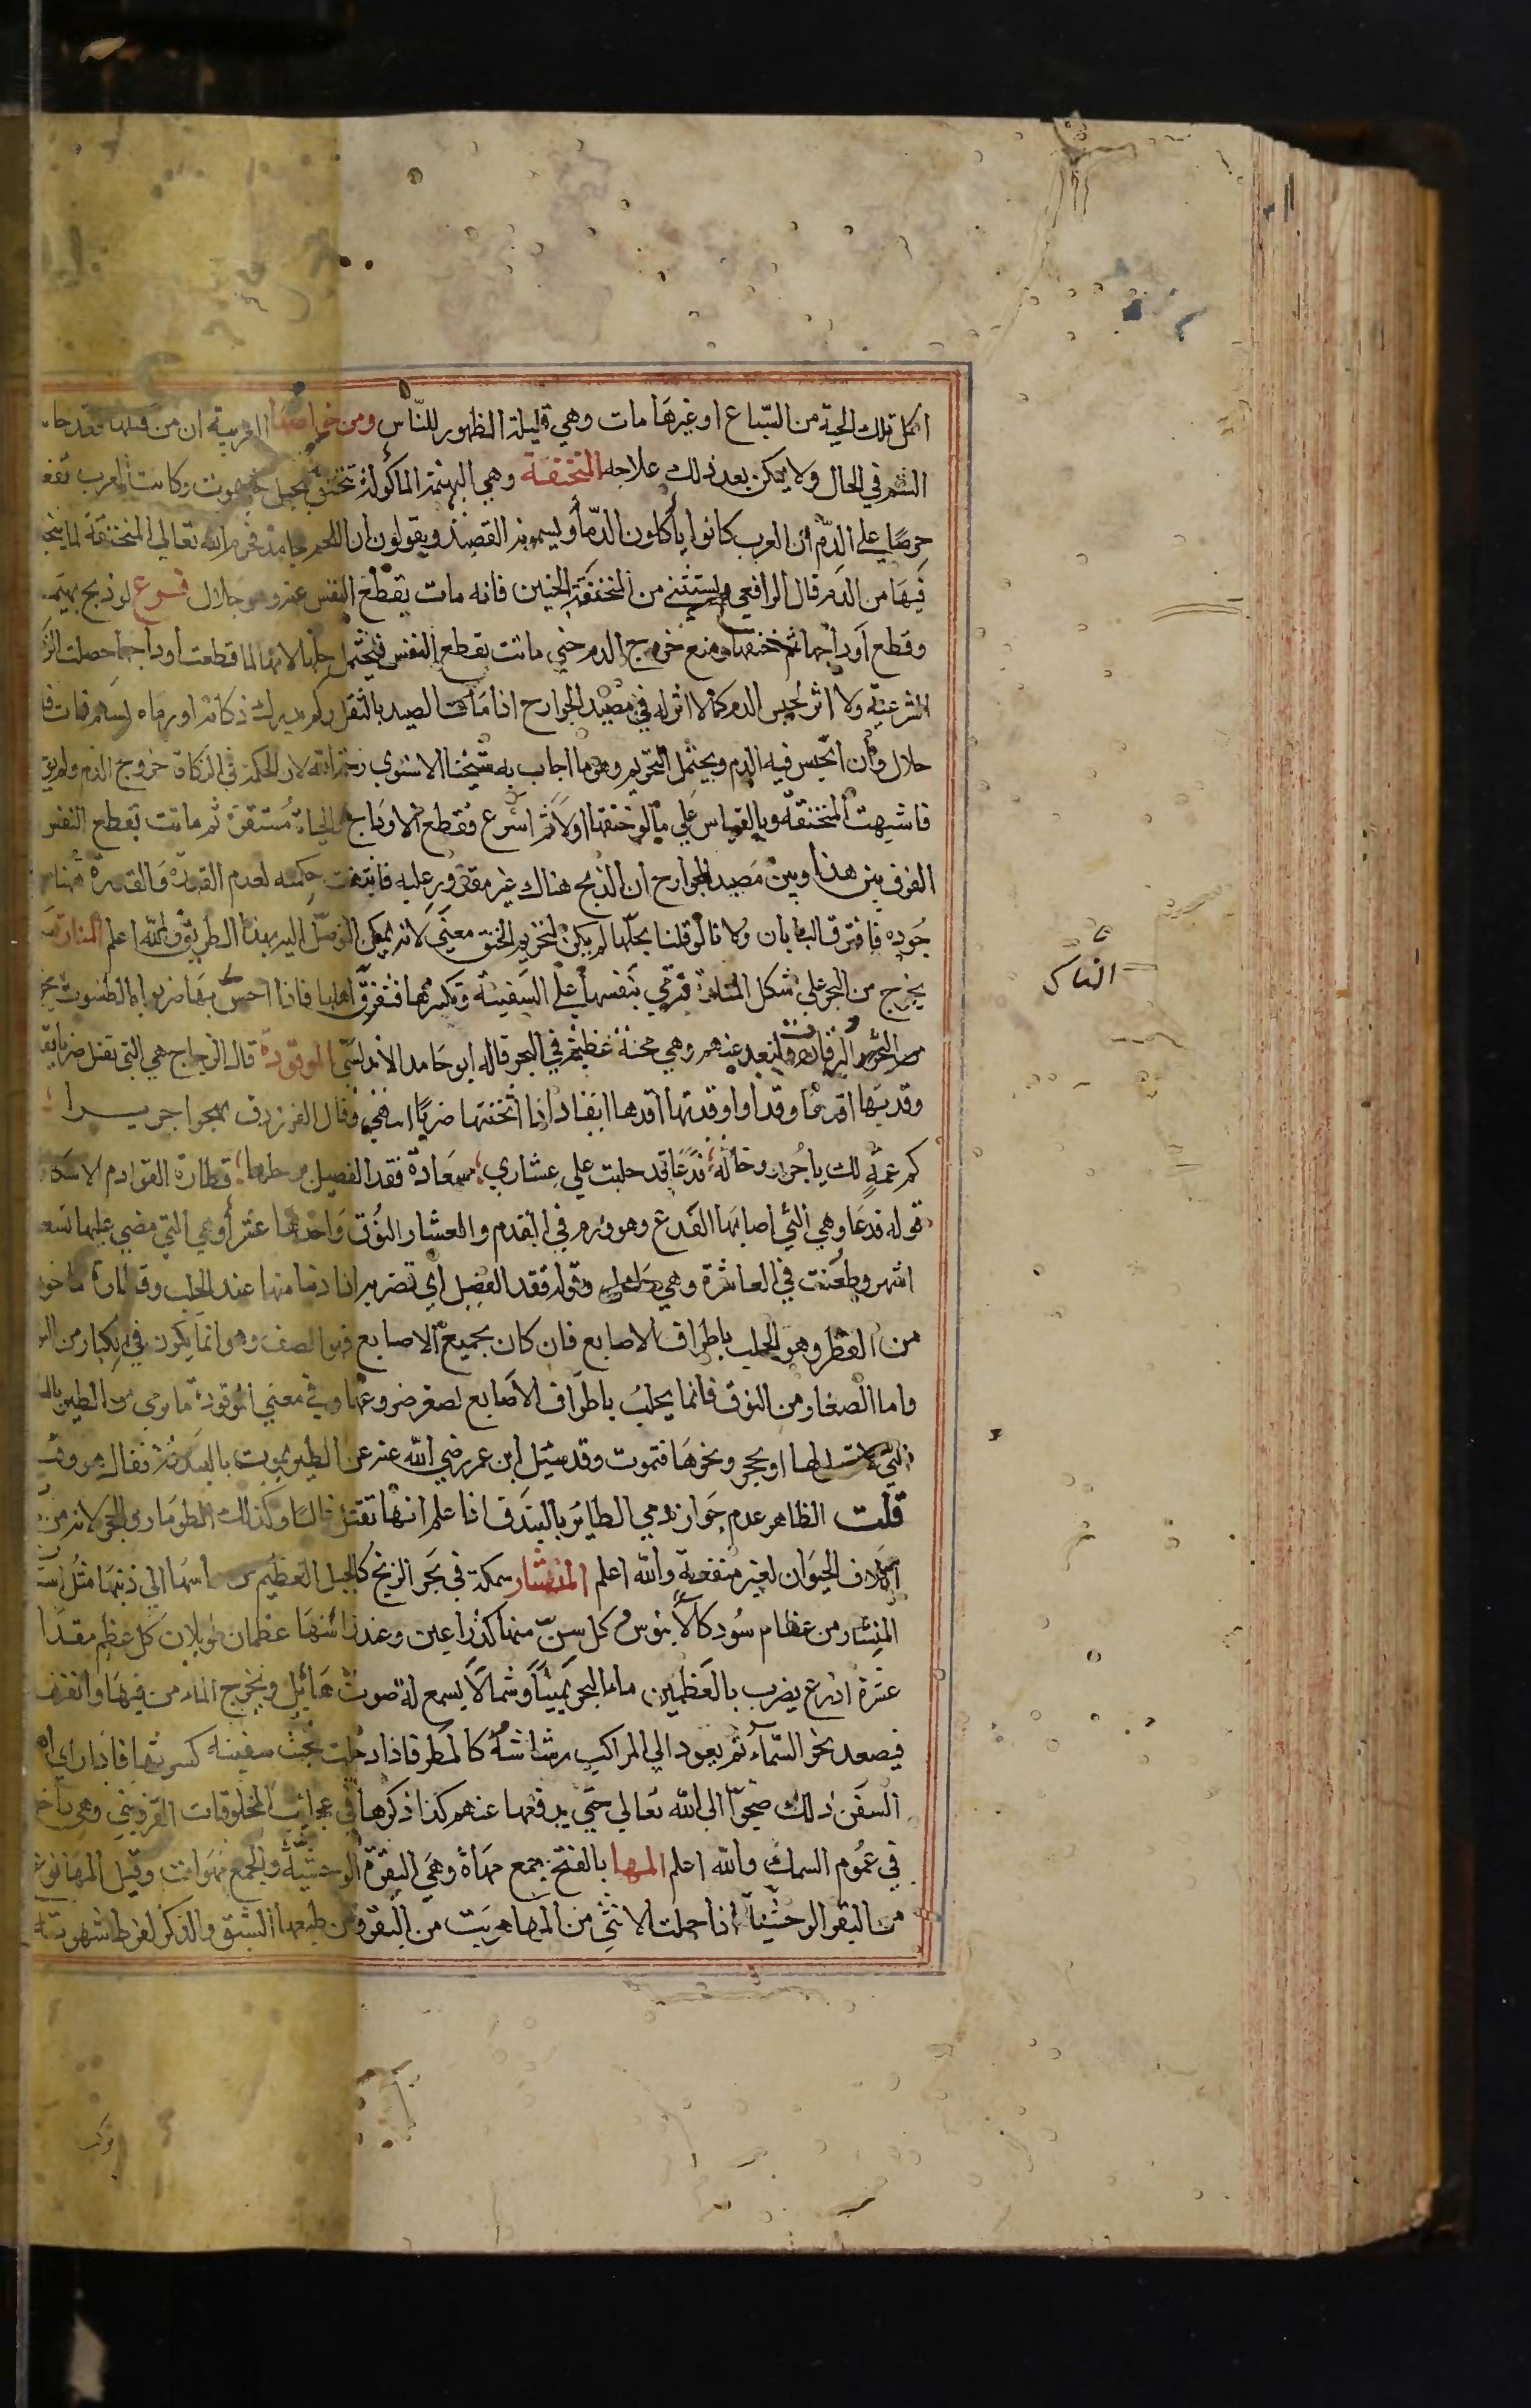 اكل تلك الحية من السباع او غيرها مات وهي قليلة الظهور للناس ومن خواصها الغريبة ان من قتلها فقد حاء
السم في الحال ولا يمكن بعد ذلك علاجه المنخنقة وهي البهيمة الماكولة تختنق بحبل فتموت وكانت العرب تفعل
حرصا على الدم ان العرب كانوا يأكلون الدماء ويسمونه القصيد ويقولون ان اللحم جامد فحرم الله تعالي المنخنقة لما
فيها من الدم قال الرافعي ويستثني من المنخنقة الجنين فانه مات بقطع النفس عنه وهو حلال فرع لو ذبح بهيمة
وقطع اوداجها ثم خنقها ومنع خروج الدم حتي ماتت بقطع النفس فيحتمل حلها لانها لما قطعت اوداجها حصلت
الشرعية ولا اثر لحبس الدم كما لا اثر له في مصيد الجوارح اذا مات الصيد بالثقل ولم يدرك ذكاته او رماه بسهم فمات
حلال وان انحبس فيه الدم ويحتمل التحريم وهو ما اجاب به شيخنا الاسنوي رحمه الله لان الحكمة في الذكاة خروج الدم ولم
فاشبهت المنخنقة وبالقياس علي ما لو خنقها اولا ثم اسرع فقطع الاوداج الحياة مستقرة ثم ماتت بقطع النفس
الفرق بين هذا وبين مصيد الجوارح ان الذبح هناك غير مقدور عليه فانتفت حكمته لعدم القدرة والقدرة هنا
جوده فافترق البابان ولانا لو قلنا بحلها لم يكن لتحريم الخنق معني لانه يمكن التوصل اليه بهذا الطريق والله اعلم المنارة
يخرج من البحر علي شكل المنارة فترمي بنفسها علي السفينة وتكسرها فتغرق اهلها فاذا احس بها ضربوا بالطسوت
والبوقات ولتبعد عنهم وهي محنة عظيمة في البحر قاله ابو حامد الاندلسي الموقوذة قال الزجاج هي التي تقتل ضربا
وقذيتها اقذها وقذا واوقذتها اقذها ايقاذا اذا اثخنتها ضربا وقال الفرزدق يهجوا جريرا
كم عمة لك يا جرير وخالة فدعا قد حلبت علي عشاري سعادة فقد الفصيل برجلها قطارة لقوادم
قوله فدعا وهي التي اصابها الفدع وهو ورم في القدم والعشار النوق واحدها عشرا وهي التي مضي عليها تسعة
اشهر وطعنت في العاشرة وهي حامل وقوله فقد الفصيل اي تضربه اذا دنا منها عند الحلب وقطارة
من القطر وهو الحلب باطراف الاصابع فان كان بجميع الاصابع فهو الصف وهو انما يكون في الكبار من
واما الصغار من النوق فانما يحلب باطراف الاصابع لصغر ضروعها وفي معني الموقوذة ما رمي من الطير
التي او بحجر ونحوها فتموت وقد سئل ابن عمر رضي الله عنه عن الطير يموت بالبندقة فقال هو
قلت الظاهر عدم جواز رمي الطائر بالبندق اذا علم انها تقتل غالبا وكذلك
اتلاف الحيوان لغير منفعة والله اعلم المنشار سمكة في بحر الزنج كالجبل العظيم من راسها الي ذنبها مثل
المنشار من عظام سود كالابنوس كل سن منها كذراعين وعند راسها عظمان طويلان كل عظم مقدار
عشرة اذرع يضرب بالعظمين ماء البحر يمينا وشمالا يسمع له صوت هائيل ويخرج الماء من فيها وانفها
فيصعد نحو السماء ثم يعود الي المراكب رشاشه كالمطر فاذا دخلت تحت سفينة كسرتها فاذا راي
السفن ذلك ضجوا الي الله تعالي حتي يدفعها عنهم كذا ذكرها في عجايب المخلوقات القزويني وهي
في عموم السمك والله اعلم المها بالفتح جمع مهاة وهي البقرة الوحشية والجمع مهوات وقيل المها نوع
من البقر الوحشية اذا حملت الانثي من المها هربت من البقر ومن طبعها الشبق والذكر لفرط شهوته